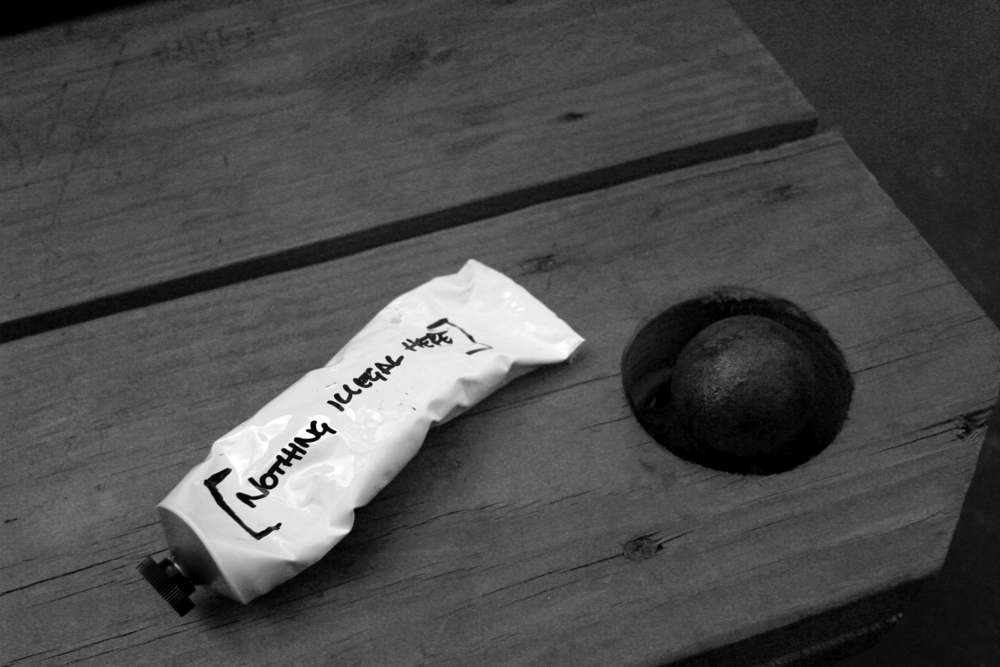 [NOTHING ILLEGAL HERE]